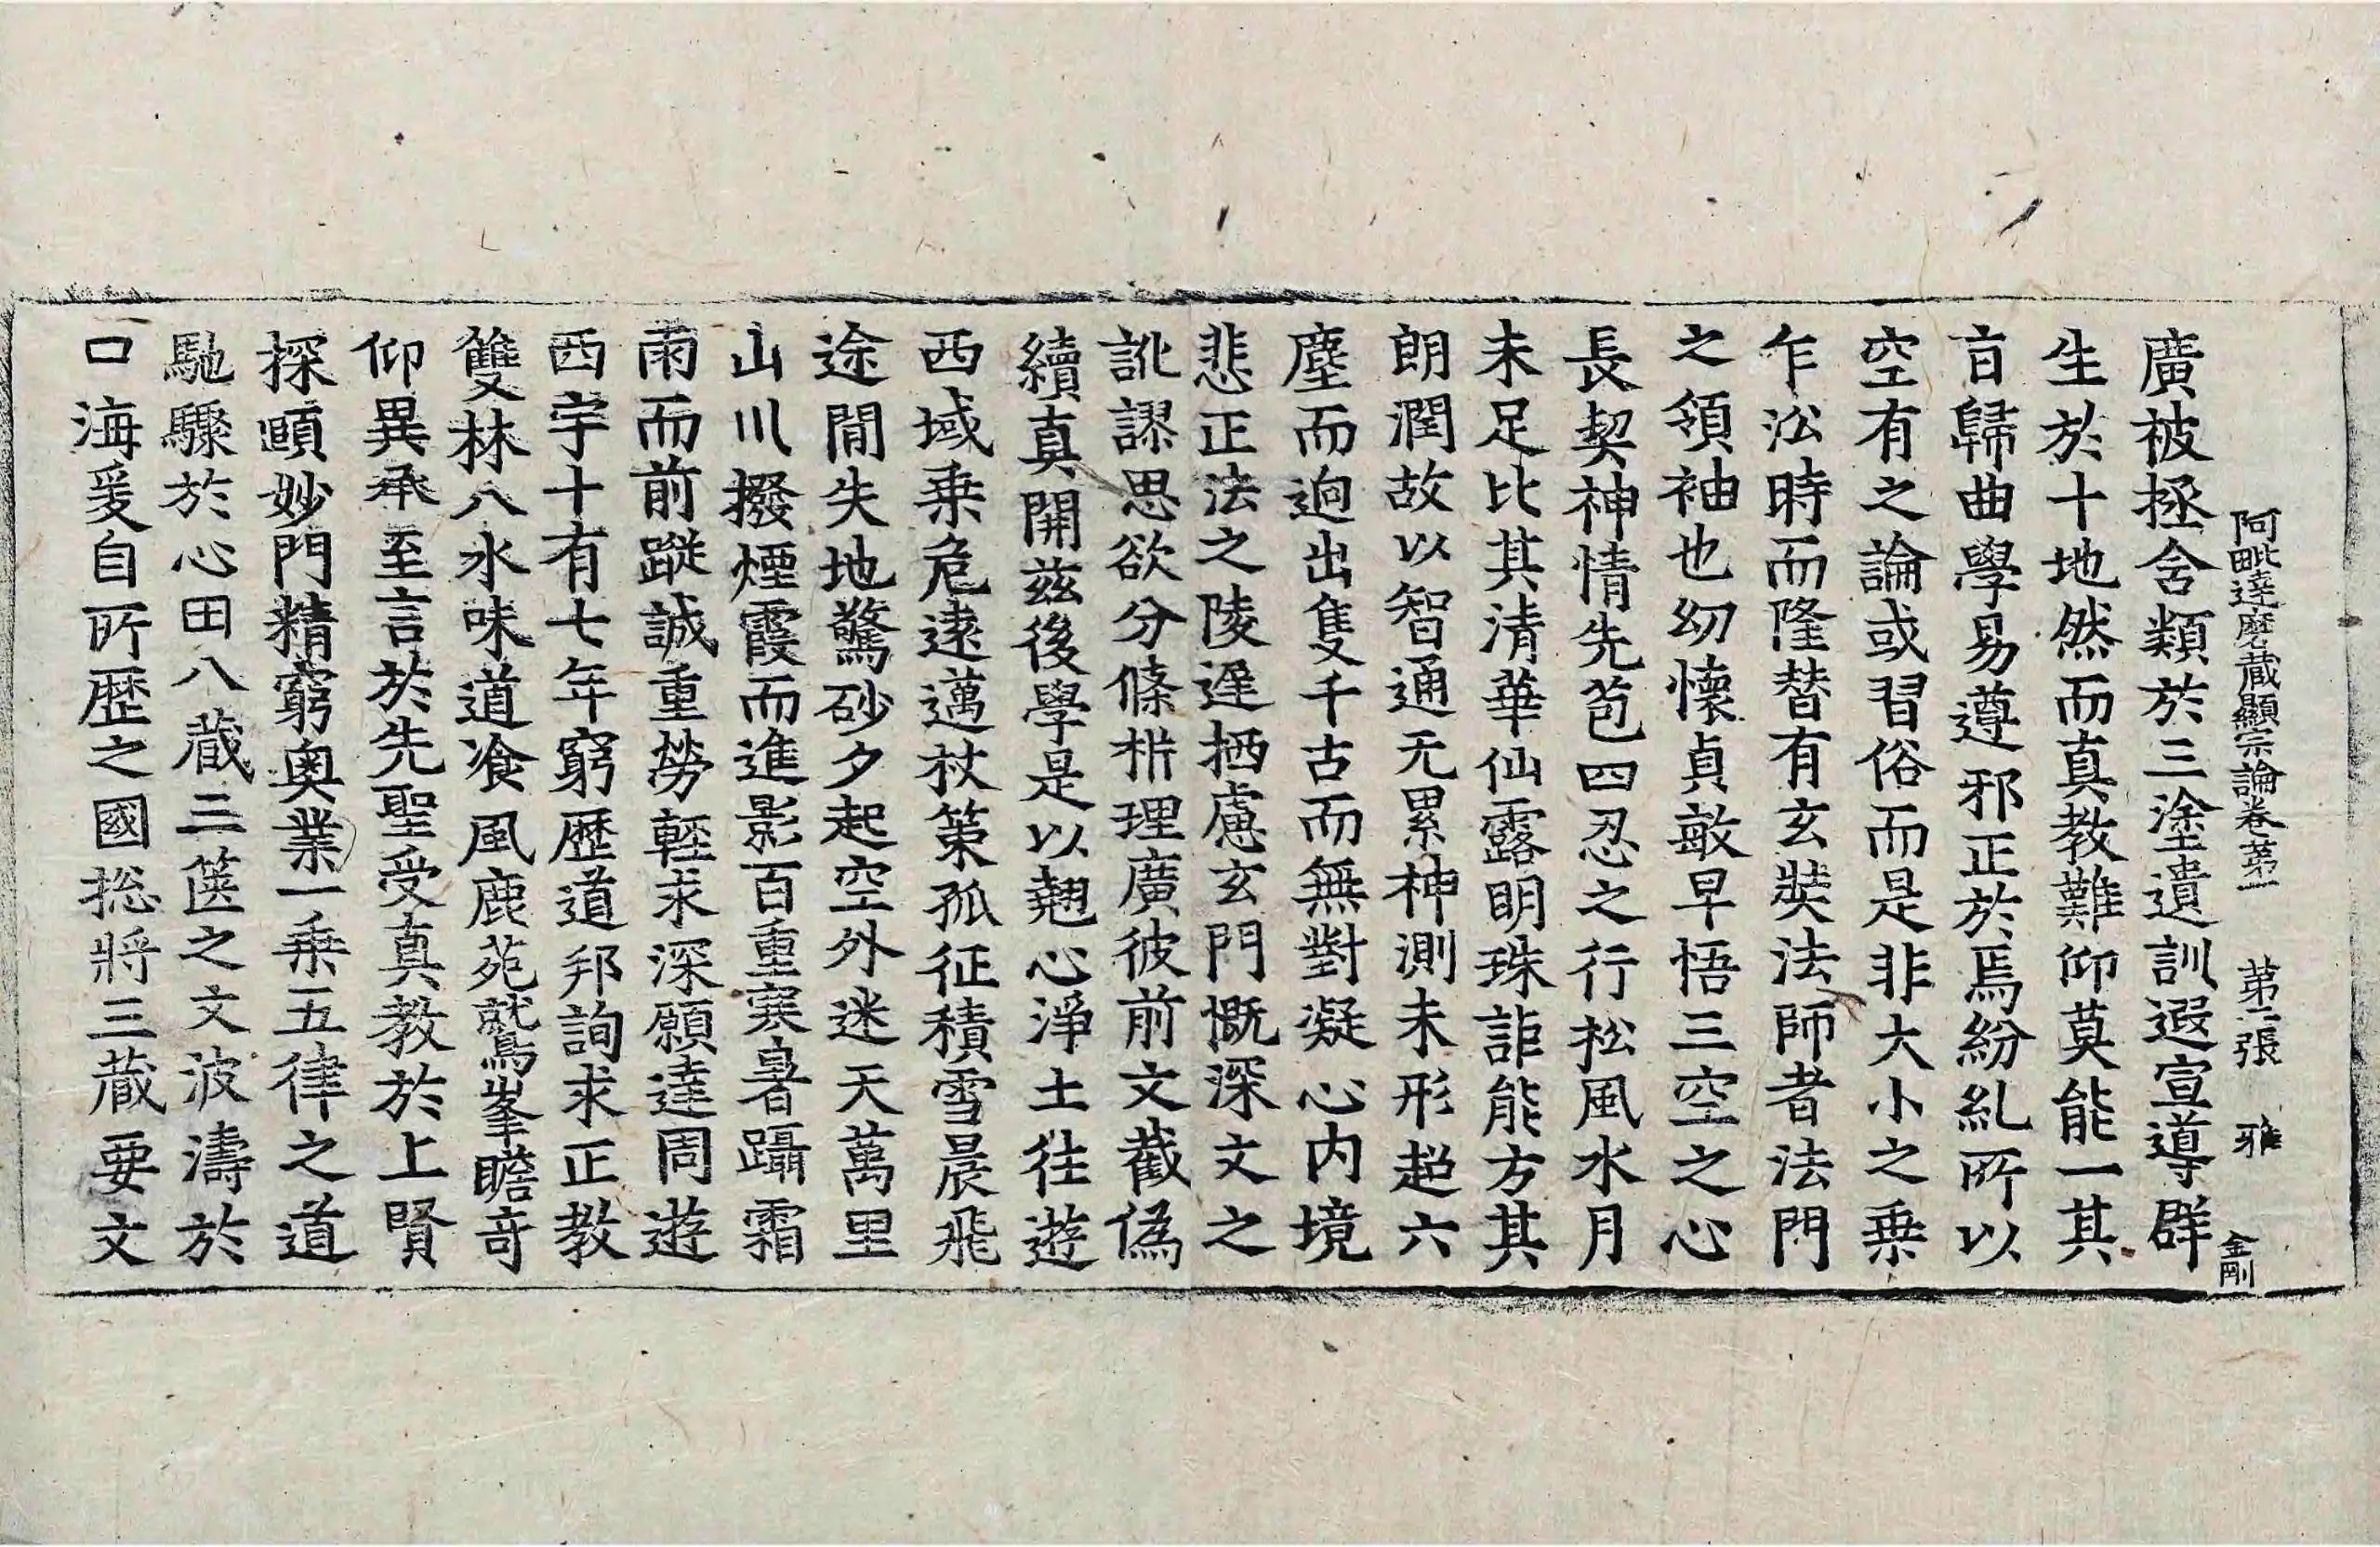 阿毗達磨藏顯宗論卷第一 第二張 雅 金剛
廣被拯含類於三塗遺訓遐宣導群
生於十地然而真教難仰莫能一其
旨歸曲學易遵邪正於焉紛糺所以
空有之論或習俗而是非大小之乗
乍沿時而隆替有玄奘法師者法門
之領袖也幼懷貞敏早悟三空之心
長契神情先苞四忍之行松風水月
未足比其清華仙露明珠詎能方其
朗潤故以智通无累神測未形超六
塵而迥出隻千古而無對凝心内境
悲正法之陵遲栖慮玄門慨深文之
訛謬思欲分條枿理廣彼前文截偽
續真開兹後學是以翹心淨土往遊
西域乗危遠邁杖策孤征積雪晨飛
途閒失地驚砂夕起空外迷天萬里
山川撥煙霞而進影百重寒暑躡霜
雨而前蹤誠重勞輕求深願達周遊
西宇十有七年窮歷道邦詢求正教
雙林八水味道飡風鹿苑鷲峯瞻奇
仰異承至言於先聖受真教於上賢
探賾妙門精窮奧業一乗五律之道
馳驟於心田八藏三篋之文波濤於
口海爰自所歷之國揔將三藏要文